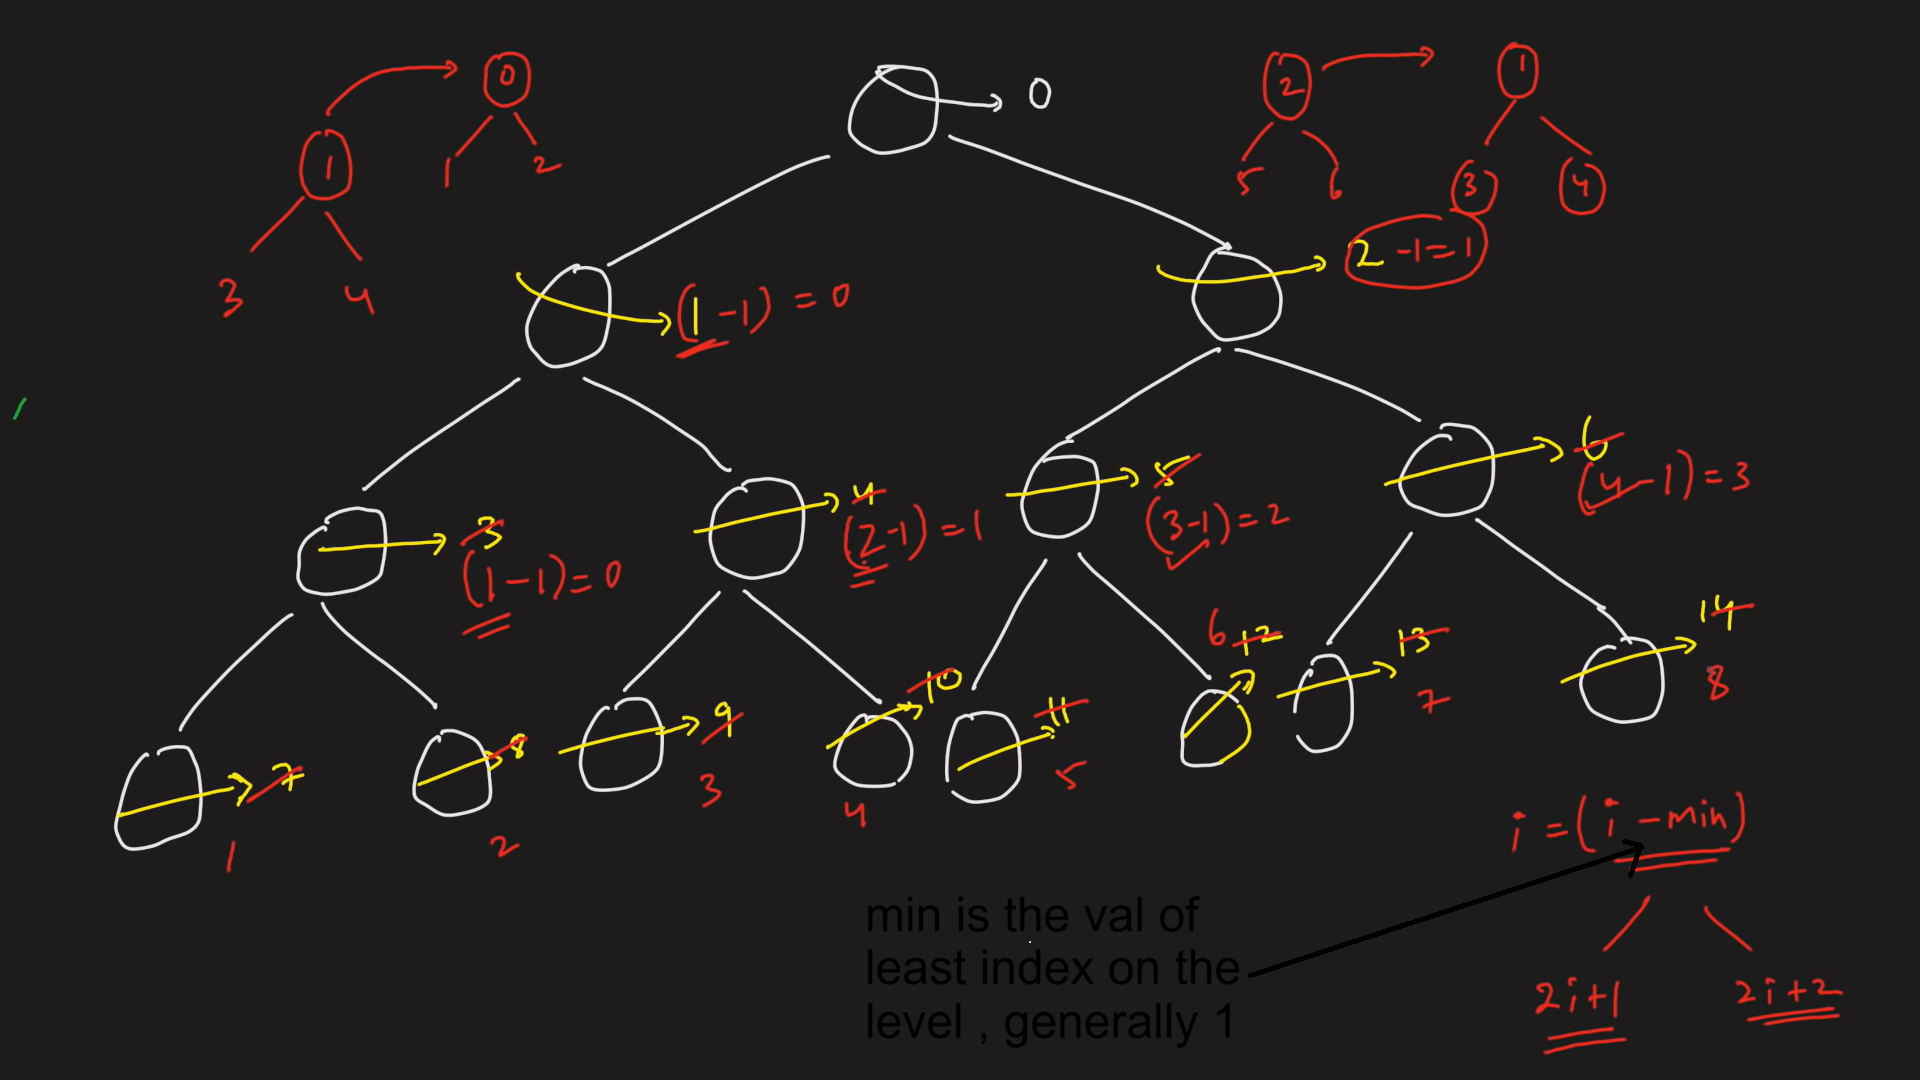 0
1
2
3
4
0
2
5
6
1
3
4
(1-1) = 0
2 -1=1
3
(1-1)=0
4
(2-1)=1
5
(3-1)=2
6
(4-1)=3
7
1
8
2
9
3
10
4
11
5
6 12
13
7
14
8
i = (i - min)
2i+1
2i+2
min is the val of
least index on the
level , generally 1